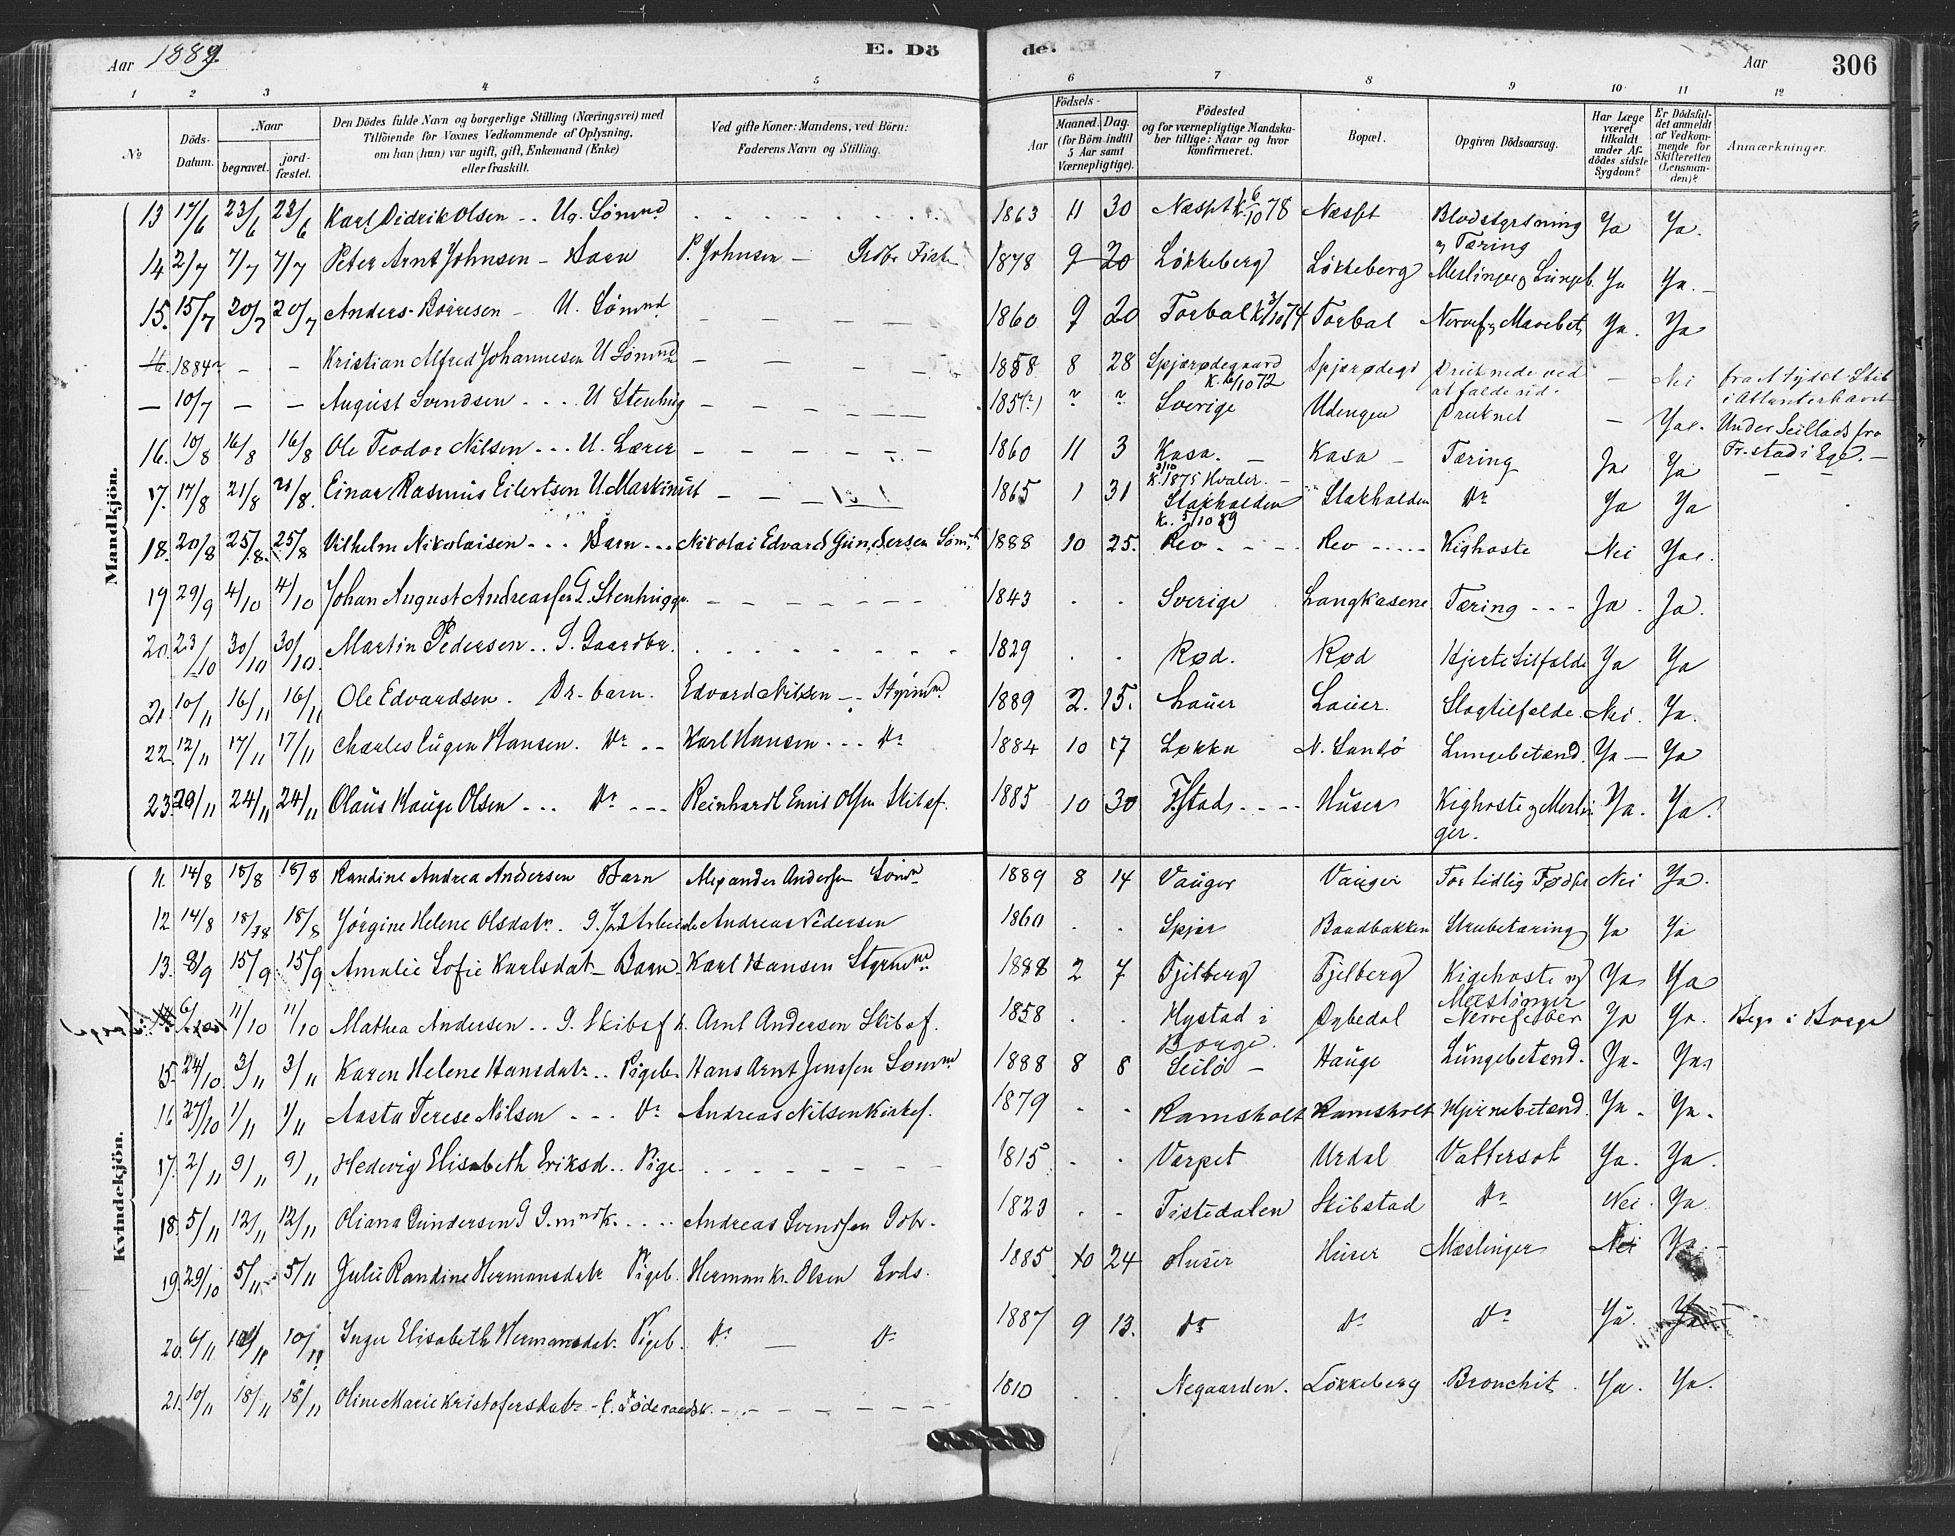 Aar 1889. E. Dö de. Aar 306
1 2 3 4 5 6 7 8 9 10 11 12
No
Döds-Datum.
Naar
begravet.
jord-fæstet.
Den Dödes fulde Navn og borgerlige Stilling (Næringsvei) med
Tilföiende for Voxnes Vedkommende af Oplysning,
om han (hun) var ugift, gift, Enkemand (Enke)
eller fraskilt.
Ved gifte Koner: Mandens, ved Börn:
Faderens Navn og Stilling.
Födsels-
Aar
Maaned. Dag.
(for Börn indtil
5 Aar samt
Værnepligtige).
Födested
og for værnepligtige Mandska-
ber tillige: Naar og hvor
konfirmeret.
Bopæl.
Opgiven Dödsaarsag.
Har Læge
været
tilkaldt
under Af-
dödes sidste
Sygdom?
Er Dödsfal-
det anmeldt
af Vedkom-
mende for
Skifteretten
(Lensman-
den)?
Anmærkninger.
Mandkjön.
13 17/6 23/6 23/6 Karl Didrik Olsen .. Ug. Sömnd 1863 11 30 Næsset k. 6/10 78 Næsset Blodstyrtning & Tæring Ja Ja.
14 2/7 7/7 7/7 Peter Arnt Johnsen - Barn P. Johnsen - 1878 9 20 Lökkeberg Lökkeberg Meslinger & Lungeb. Ja Ja. -
15. 15/7 20/7 20/7 Anders Börresen - U. Sömnd 1860 9 20 Torbal k. 3/10 74 Torbal Nervef. & Mavebet. Ja. Ja
1884 - - Kristian Alfred Johannesen U Sömnd 1858 8 28 Spjærødegaard k. 6/10 72 Spjærødegd Druknede ved at falde ud. - Nei fra et tydsk Skib i Atlanterhavet
- 10/7 - - August Svendsen .... U Stenhug 185(?) ? ? Sverige Udengen Druknet - Ja. Under Seillads fra Fr.stad i Ege. -
16. 10/8 16/8 16/8 Ole Teodor Nilsen ... U. Lærer 1860 11 3 Kasa. - k. 3/10 1875 Hvaler. - Kasa - Tæring Ja Ja
17. 17/8 21/8 21/8. Einar Rasmus Eilertsen U Maskinist 1865 1 31 Stakholden k. 5/10 89 Stakholden Dr Ja Ja
18. 20/8 25/8. 25/8 Vilhelm Nikolaisen ... Barn ... Nikolai Edvard Gundersen Söm. 1888 10 25. Rev Rev Kighoste Nei Ja.
19 29/9 4/10 4/10 Johan August Andreassen G. Stenhugger 1843 . . Sverige Langkasene Tæring --- Ja. Ja.
20. 23/10 30/10 30/10. Martin Pedersen .. G. Gaardbr. 1829 . . Rød. Rød Hjertetilfælde Ja Ja
21. 10/11 16/11 16/11 Ole Edvardsen. Dr-barn. Edvard Nilsen -- Styrmd. 1889 2. 15. Lauer Lauer. Slagtilfælde. Nei. Ja.
22. 12/11 17/11 17/11 Charles Eugen Hansen. Dr .. Karl Hansen ... Dr 1884 10 17 Løkka N. Sandö Lungebetænd. Ja - Ja
23. 20/11 24/11 24/11 Olaus Hauge Olsen ... Dr --- Reinhardt Emil Olsen Skibsf. 1885 10 30 F.stad Huser Kighoste & Meslinger. Ja. Ja.
Kvindekjön.
11. 14/8 18/8 18/8 Randine Andrea Andersen Barn Alexander Andersen Sömnd 1889 8 14 Vauger Vauger For tidlig Fødsel Nei Ja.
12 14/8 18/8 18/8 Jörgine Helene Olsdatr. G. Andreas Pedersen 1860 . . Spjær Baadbakken Strubetæring Ja Ja
13. 8/9 15/9 15/9 Amalie Sofie Karlsdat - Barn. Karl Hansen Styrmd 1888 2 7 Fjelberg Fjelberg Kigehoste og Meslinger Ja Ja
6/10 11/10 11/10 Mathea Andersen .. G. Skibsf k. Arnt Andersen Skibsf. 1858 . . Hystad i Borge. Dybedal Nervefeber Ja Ja. Begr i Borge
15. 24/10 3/11 3/11 Karen Helene Hansdatr.. Pigeb. Hans Arnt Jenssen Sömnd 1888 8 8 Seilö - Hauge Lungebetænd. Ja. Ja.
16 27/10 1/11 1/11 Aasta Terese Nilsen --- Dr Andreas Nilsen Kirkef. 1879 . . Ramsholt Ramsholt Hjernebetænd. Ja. Ja.
17. 2/11 9/11 9/11 Hedevig Elisabeth Eriksd.. Pige 1815 . . Værpet Urdal Vattersot Ja. Ja.
18. 5/11 12/11 12/11 Oliana Gundersen G G.mndk. .... Andreas Svendsen Gbr. 1823 . . Tistedalen Skibstad Dr Nei. Ja
19. 29/10 5/11 5/11 Julie Randine Hermansdatr Pigeb. Herman Kr. Olsen Lods. 1885 10 24 Huser Huser Mæslinger Nei Ja. -
20. 6/11 10/11 10/11 Inger Elisabeth Hermansdat. Pigeb. Dr - Dr 1887 9 13. Dr Dr Dr Ja. Ja
21. 10/11 18/11 18/11 Oline Marie Kristofersdatr - 1810 . . Negaarden. Lökkeberg Bronchit. Ja. Ja.